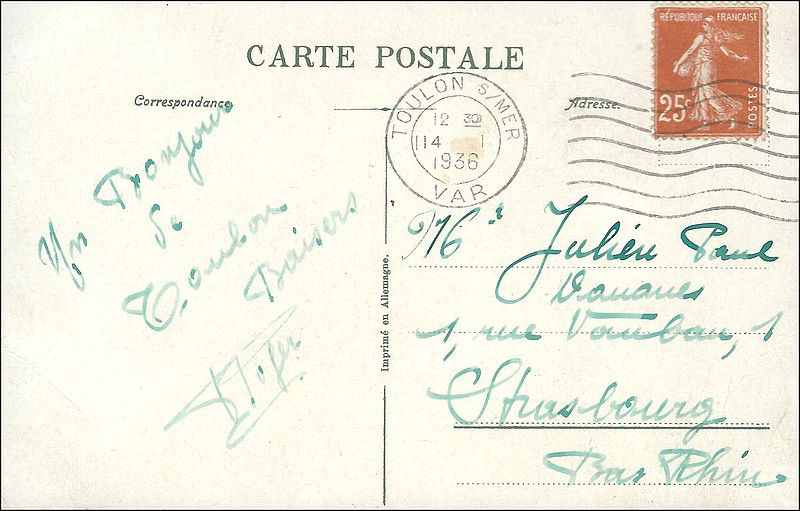 CARTE POSTALE
Correspondance.
Adresse.
RÉPUBLIQUE FRANÇAISE
25c
POSTES
TOULON S/MER
12 30
14 - 1
1936
VAR
Un Bonjour
de
Toulon
Baisers
Imprimé en Allemagne.
Mr Julien Paul
Douanes
1, rue Vauban, 1
Strasbourg
Bas Rhin